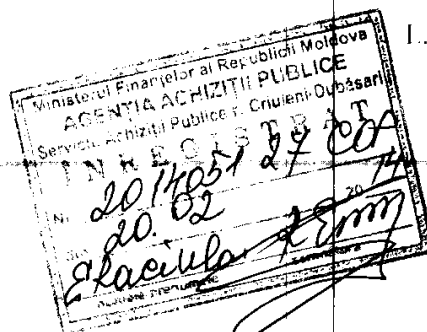 Ministerul Finanţelor al Republicii Moldova
AGENŢIA ACHIZIŢII PUBLICE
Serviciul Achiziţii Publice r. Criuleni-Dubăsari
INREGISTRAT
Nr. 2014051 27 COP
20.02 20 14
numele prenumele semnătura